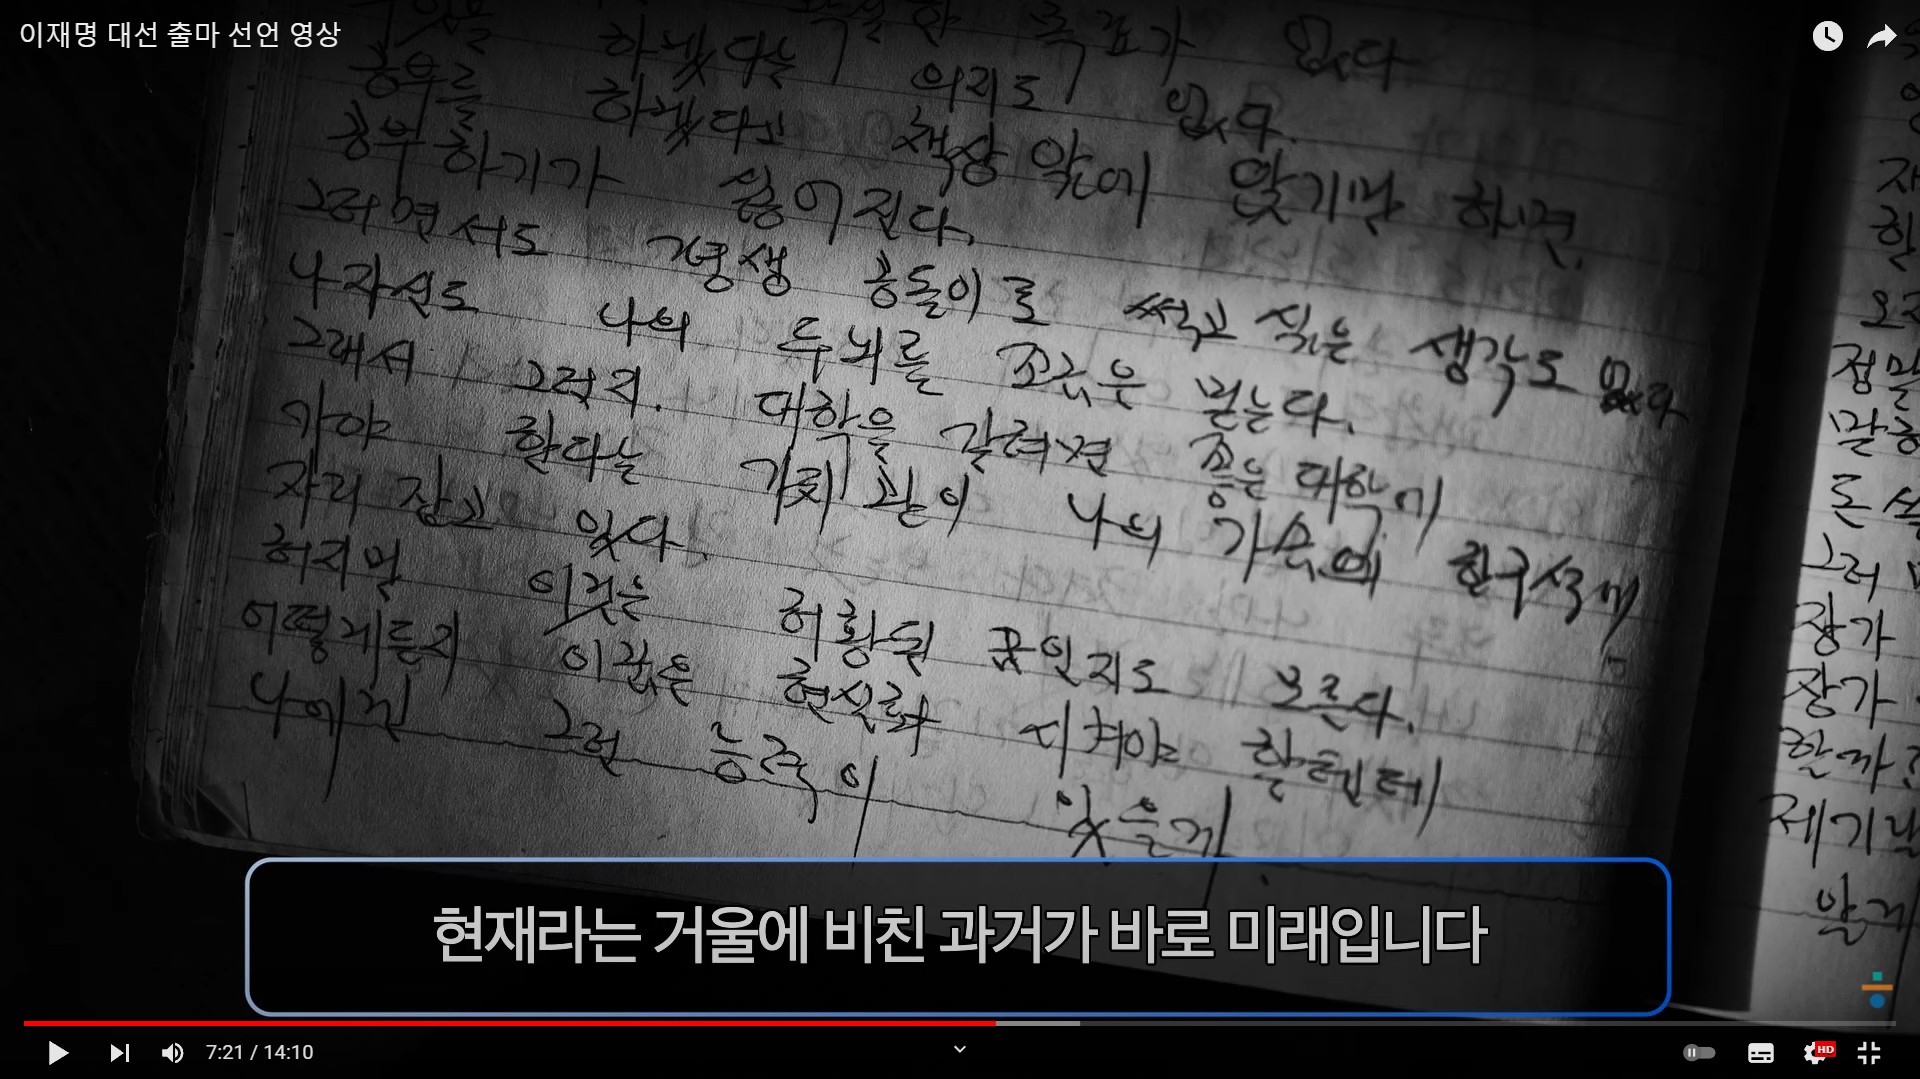 이재명 대선 출마 선언 영상
목표가 없다
공부를 하겠다는 의지도 없다.
공부를 하겠다고 책상 앞에 앉기만 하면.
공부하기가 싫어진다.
그러면서도 평생 공돌이로 썩고 싶은 생각도 없다
나 자신도 나의 두뇌를 조금은 믿는다.
그래서 그러지. 대학을 갈려면 좋은 대학에
가야 한다는 가치관이 나의 가슴에 한구석에
자리 잡고 있다.
허지만 이것은 허황된 꿈인지도 모른다.
어떻게든지 이 꿈은 현실화 시켜야 할텐데
나에겐 그런 능력이 있을가
정말
그러
장가
장가
할까
제기
현재라는 거울에 비친 과거가 바로 미래입니다
7:21 / 14:10
HD